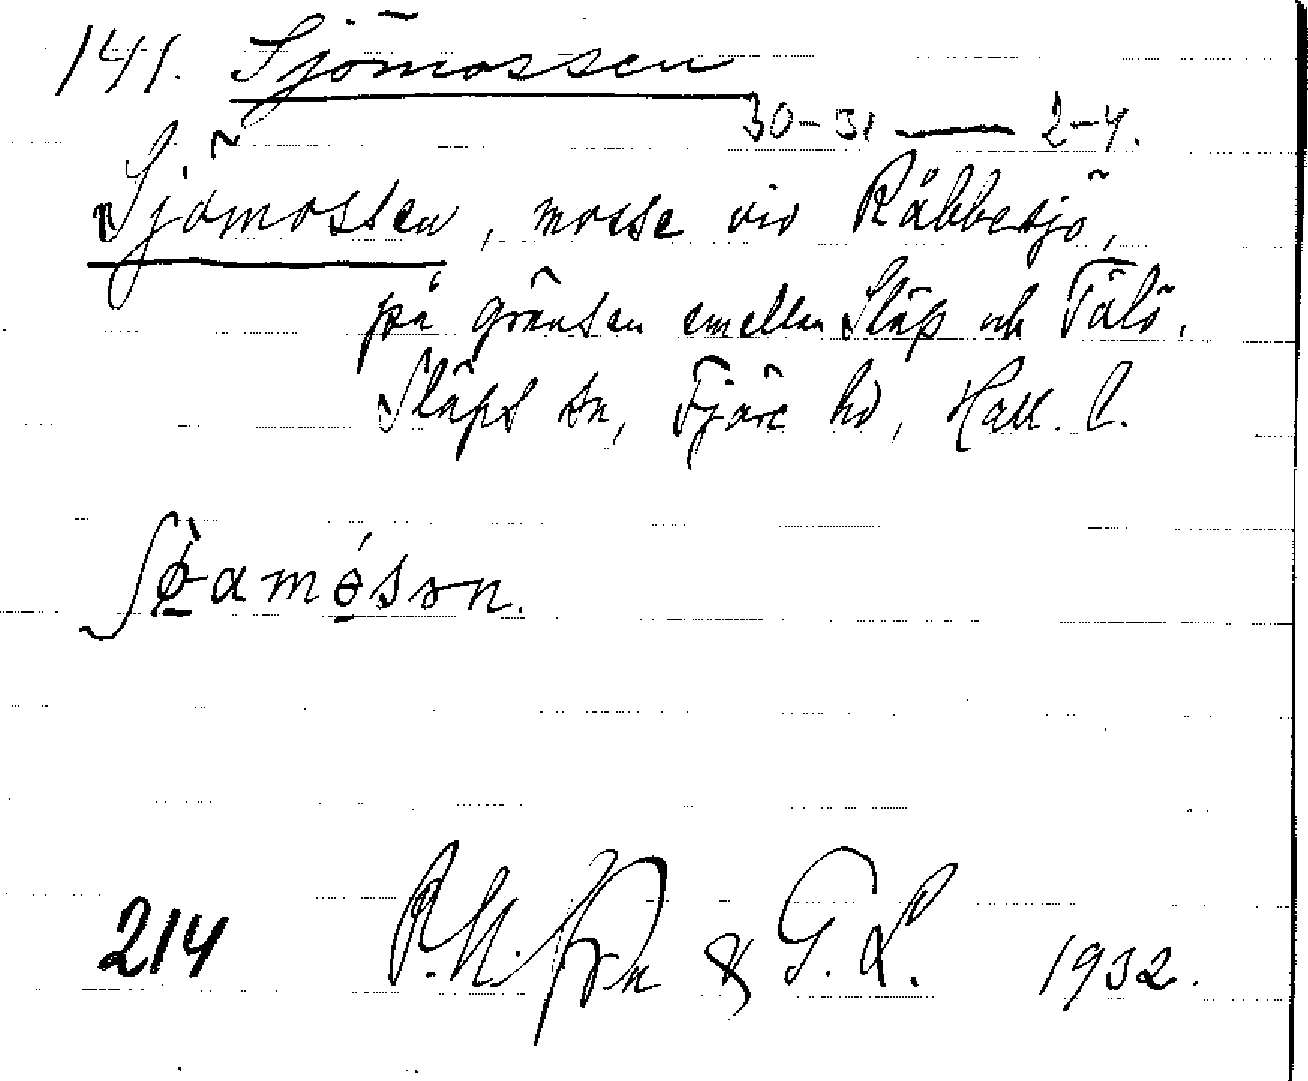 141. Sjömossen
30-31 — 2-4.
Sjömossen, mosse vid Råbbesjö,
på gränsen emellan Släp och Tölö.
Släps sn, Fjäre hd, Hall. l.
214 & G. L. 1932.